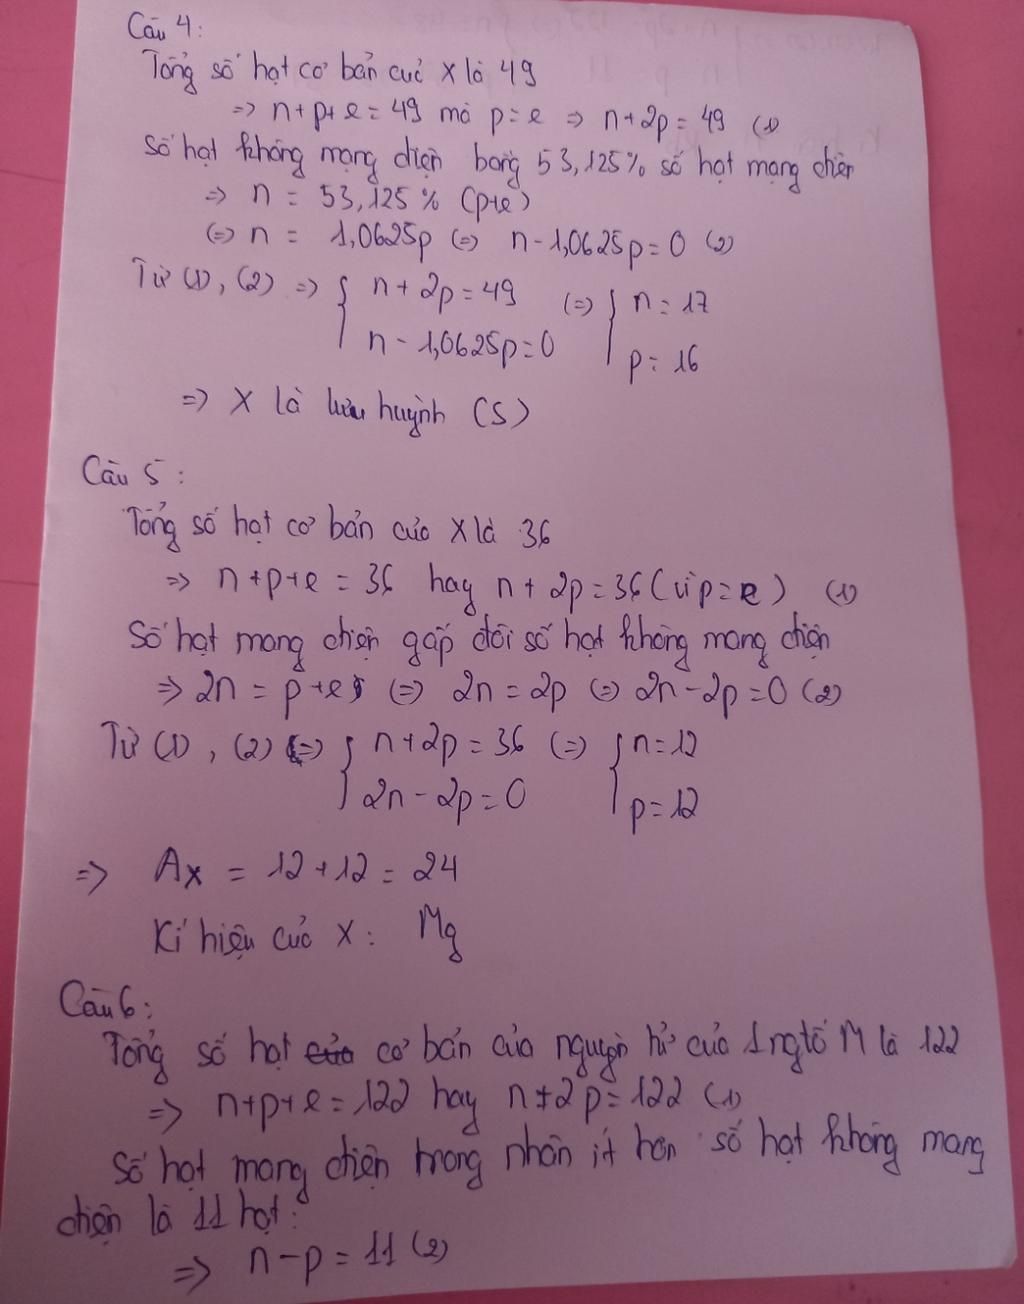 Câu 4:
Tổng số hạt cơ bản của X là 49
=> n+p+e = 49 mà p=e => n+2p = 49 (1)
Số hạt không mạng điện bằng 53,125% số hạt mạng điện
=> n = 53,125% (p+e)
(=> n = 1,0625p (=) n - 1,0625p = 0 (2)
Từ (1), (2) => { n + 2p = 49 (=) { n = 17
n - 1,0625p = 0 p = 16
=> X là lưu huỳnh (S)
Câu 5:
Tổng số hạt cơ bản của X là 36
=> n+p+e = 36 hay n + 2p = 36 (vì p=e) (1)
Số hạt mang điện gấp đôi số hạt không mang điện
=> 2n = p+e (=) 2n = 2p (=) 2n - 2p = 0 (2)
Từ (1), (2) (=) { n+2p = 36 (=) { n = 12
2n - 2p = 0 p = 12
=> Ax = 12 + 12 = 24
Kí hiệu của X: Mg
Câu 6:
Tổng số hạt của cơ bản của nguyên tử của 1 ngtố M là 122
=> n+p+e = 122 hay n+2p = 122 (1)
Số hạt mang điện trong nhân ít hơn số hạt không mang
điện là 11 hạt:
=> n-p = 11 (2)